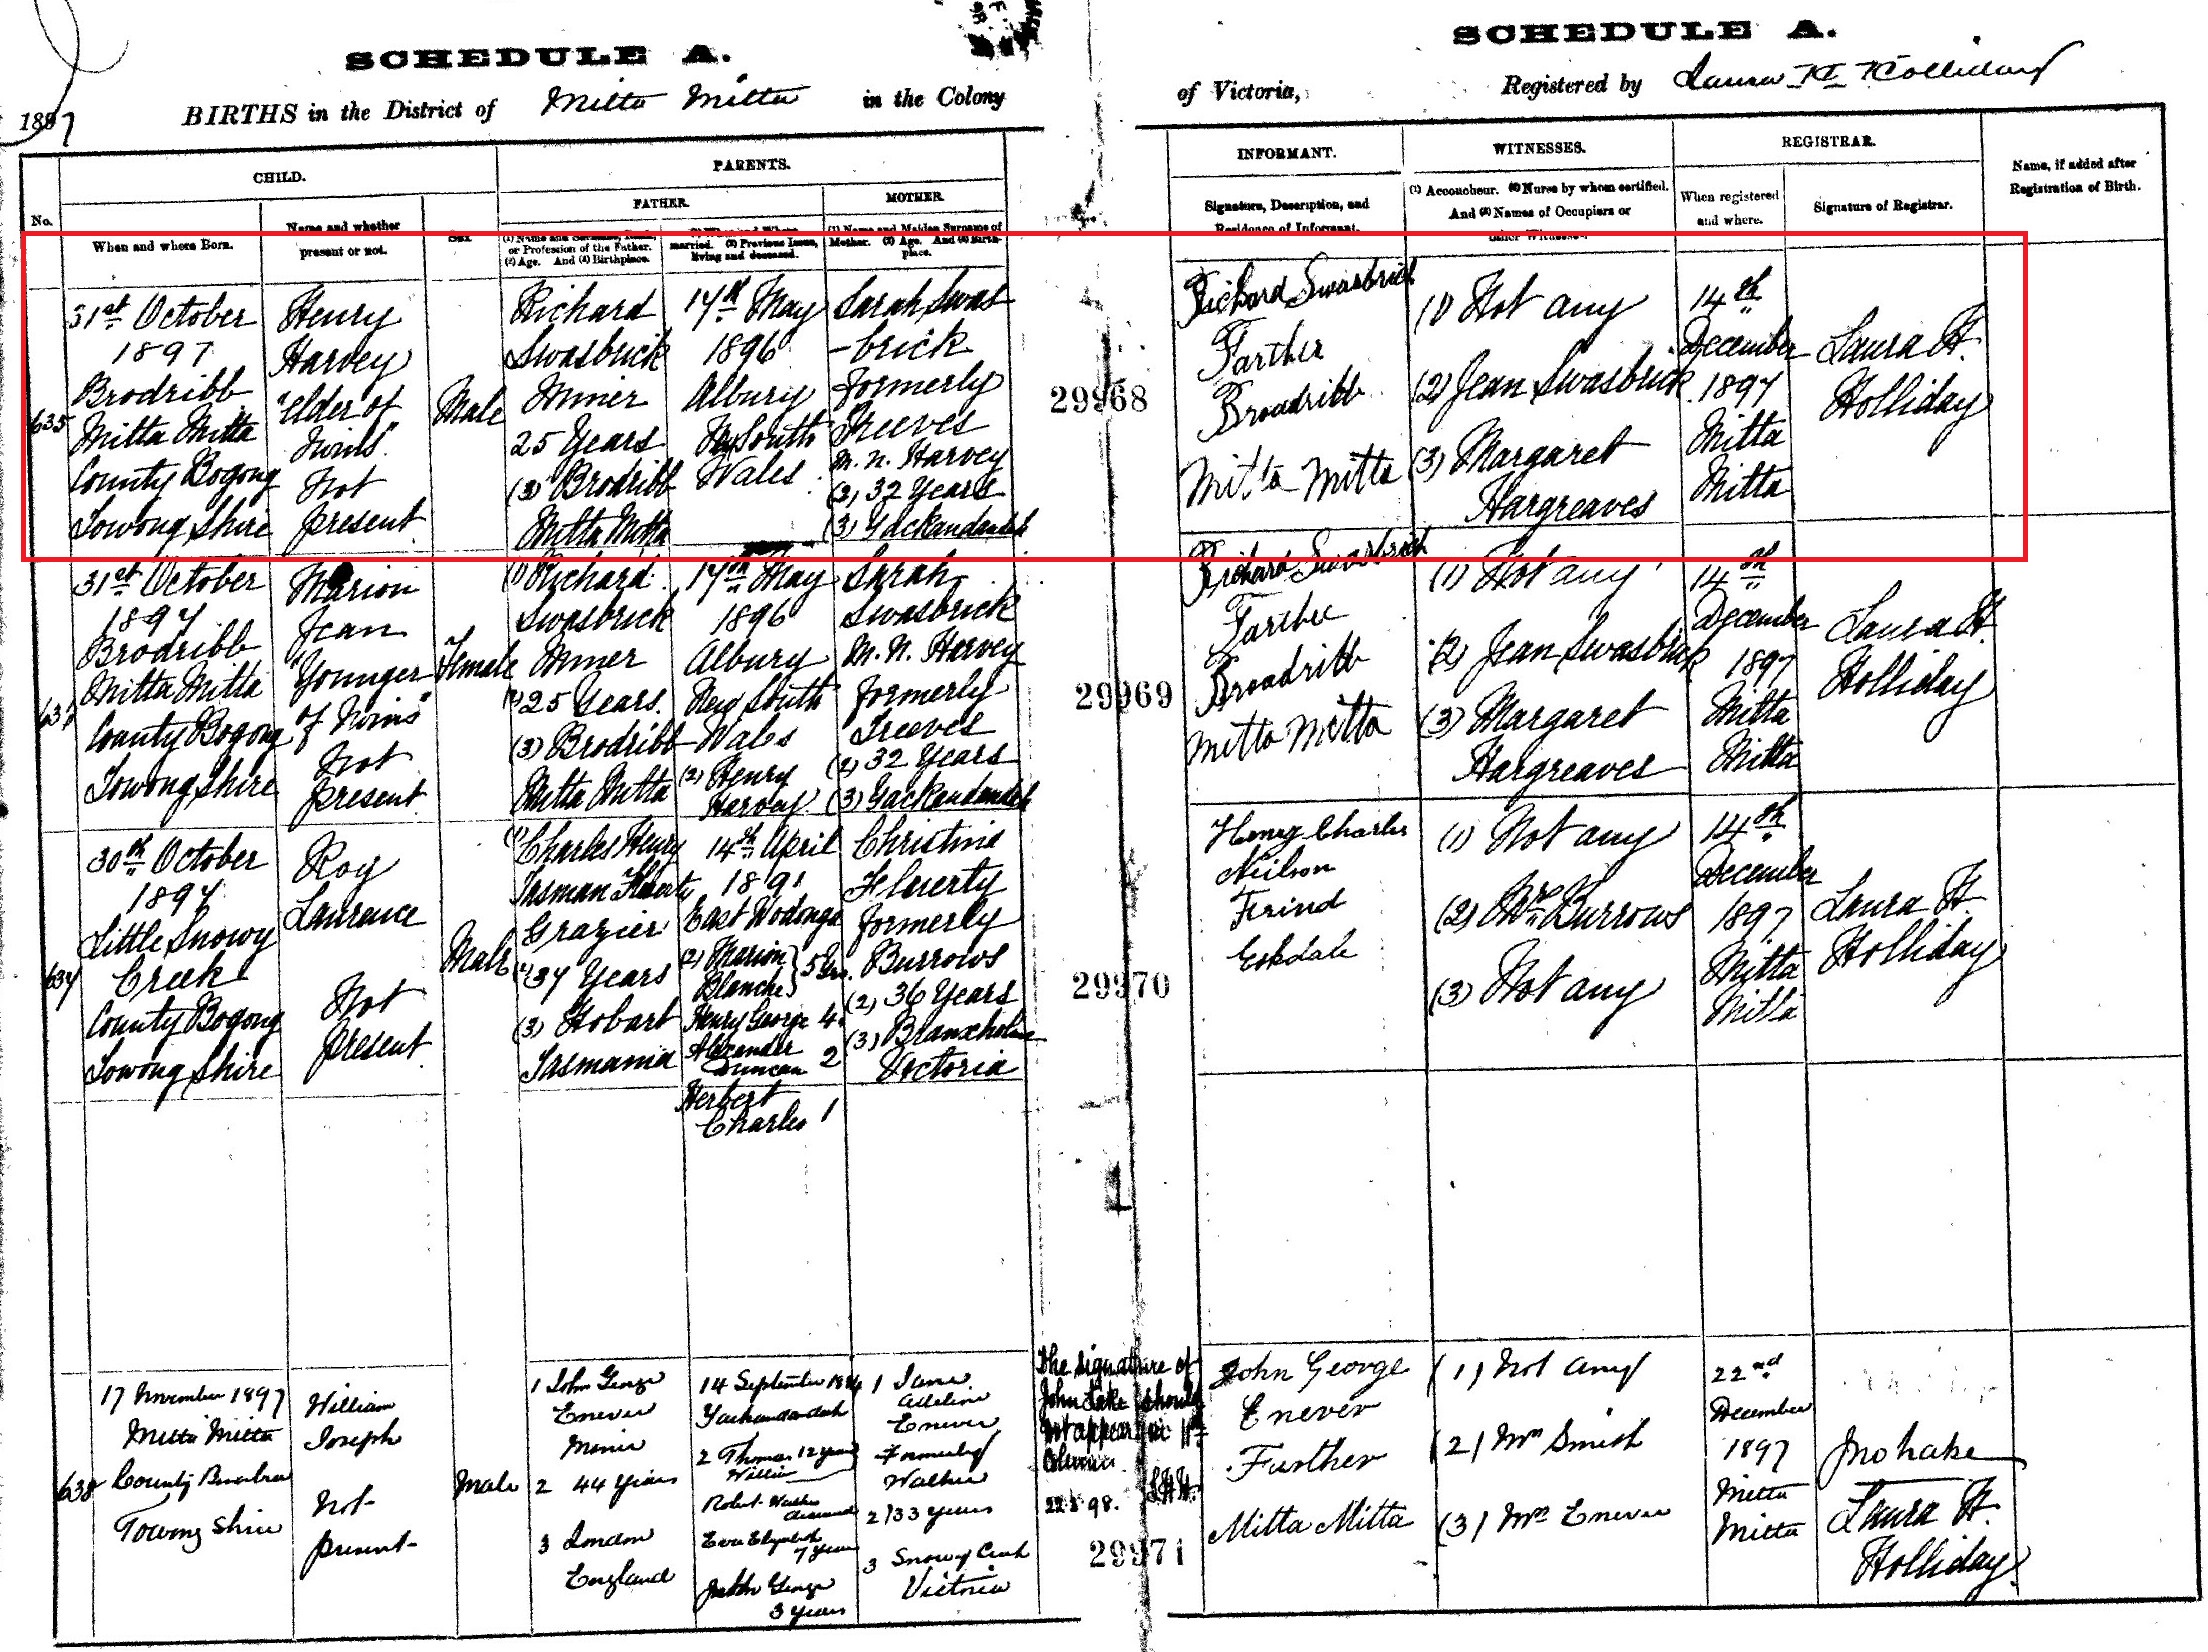 SCHEDULE A.
SCHEDULE A.
1897
BIRTHS in the District of Mitta Mitta in the Colony
of Victoria,
Registered by Laura H. Holliday
No.
CHILD.
When and where Born.
Name and whether
present or not.
PARENTS.
FATHER.
or Profession of the Father.
(2) Age. And (3) Birthplace.
married. (2) Previous Issue,
living and deceased.
MOTHER.
(1) Name and Maiden Surname of
Mother. (2) Age. And (3) Birth-
place.
INFORMANT.
Signature, Description, and
Residence of Informant.
WITNESSES.
(1) Accoucheur. (2) Nurse by whom certified.
And (3) Names of Occupiers or
other Witnesses.
REGISTRAR.
When registered
and where.
Signature of Registrar.
Name, if added after
Registration of Birth.
635
31st October
1897
Brodribb
Mitta Mitta
County Bogong
Towong Shire
Henry
Harvey
"elder of
Twins"
Not
present
Male
Richard
Swasbrick
Miner
25 Years
(3) Brodribb
Mitta Mitta
17th May
1896
Albury
New South
Wales
Sarah Swas
-brick
formerly
Treeves
M. N. Harvey
(2) 32 Years
(3) Yackandandah
29968
Richard Swasbrick
Farther
Broadribb
Mitta Mitta
(1) Not any
(2) Jean Swasbrick
(3) Margaret
Hargreaves
14th
December
1897
Mitta
Mitta
Laura H.
Holliday
31st October
1897
Brodribb
Mitta Mitta
County Bogong
Towong Shire
Marion
Jean
"Younger
of Twins"
Not
present
Female
(1) Richard
Swasbrick
Miner
25 Years.
(3) Brodribb
Mitta Mitta
17th May
1896
Albury
New South
Wales
(2) Henry
Harvey
Sarah
Swasbrick
M. N. Harvey
formerly
Treeves
(2) 32 Years
(3) Yackandandah
29969
Richard Swasbrick
Farther
Broadribb
Mitta Mitta
(1) Not any
(2) Jean Swasbrick
(3) Margaret
Hargreaves
14th
December
1897
Mitta
Mitta
Laura H.
Holliday
637
30th October
1897
Little Snowy
Creek
County Bogong
Towong Shire
Roy
Laurence
Not
present
Male
(1) Charles Henry
Tasman
Grazier
37 Years
(3) Hobart
Tasmania
14th April
1891
East Wodonga
(2) Marion
Blanche } 5 Yrs.
Henry George 4
Alexander
Duncan 2
Herbert
Charles 1
Christina
formerly
Burrows
(2) 36 Years
(3) Branxholme
Victoria
29970
Henry Charles
Neilson
Frind
Eskdale
(1) Not any
(2) Mrs Burrows
(3) Not any
14th
December
1897
Mitta
Mitta
Laura H.
Holliday
638
17 November 1897
Mitta Mitta
County
Towong Shire
William
Joseph
Not
present
Male
1 John George
Enever
Miner
2 44 Years
3 London
England
14 September
Yackandandah
2 Thomas 12 years
Eva Elizabeth
7 years
George
3 years
1 Jane
Adeline
Enever
Formerly
Walker
2/33 years
3 Snowy Creek
Victoria
The signature of
John Lake should
not appear in
22 98. L.H.H.
29971
John George
Enever
Further
Mitta Mitta
(1) Not any
(2) Mrs Smith
(3) Mrs Enever
22nd
December
1897
Mitta
Mitta
Jno Lake
Laura H.
Holliday